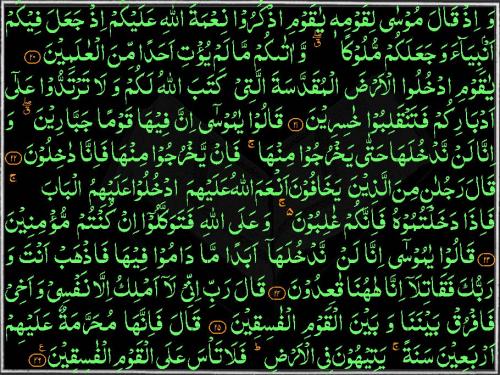 وَ اِذْ قَالَ مُوْسٰى لِقَوْمِهٖ يٰقَوْمِ اذْكُرُوْا نِعْمَةَ اللّٰهِ عَلَيْكُمْ اِذْ جَعَلَ فِيْكُمْ
اَنْۢبِيَآءَ وَ جَعَلَكُمْ مُّلُوْكًا ۖۗ وَّ اٰتٰىكُمْ مَّا لَمْ يُؤْتِ اَحَدًا مِّنَ الْعٰلَمِيْنَ ﴿۲۰﴾
يٰقَوْمِ ادْخُلُوا الْاَرْضَ الْمُقَدَّسَةَ الَّتِيْ كَتَبَ اللّٰهُ لَكُمْ وَ لَا تَرْتَدُّوْا عَلٰۤى
اَدْبَارِكُمْ فَتَنْقَلِبُوْا خٰسِرِيْنَ ﴿۲۱﴾ قَالُوْا يٰمُوْسٰۤى اِنَّ فِيْهَا قَوْمًا جَبَّارِيْنَ ۖۗ وَ
اِنَّا لَنْ نَّدْخُلَهَا حَتّٰى يَخْرُجُوْا مِنْهَا ۚ فَاِنْ يَّخْرُجُوْا مِنْهَا فَاِنَّا دٰخِلُوْنَ ﴿۲۲﴾
قَالَ رَجُلٰنِ مِنَ الَّذِيْنَ يَخَافُوْنَ اَنْعَمَ اللّٰهُ عَلَيْهِمَا ادْخُلُوْا عَلَيْهِمُ الْبَابَ ۚ
فَاِذَا دَخَلْتُمُوْهُ فَاِنَّكُمْ غٰلِبُوْنَ ۵ۚ وَ عَلَى اللّٰهِ فَتَوَكَّلُوْۤا اِنْ كُنْتُمْ مُّؤْمِنِيْنَ
﴿۲۳﴾ قَالُوْا يٰمُوْسٰۤى اِنَّا لَنْ نَّدْخُلَهَاۤ اَبَدًا مَّا دَامُوْا فِيْهَا فَاذْهَبْ اَنْتَ وَ
رَبُّكَ فَقَاتِلَاۤ اِنَّا هٰهُنَا قٰعِدُوْنَ ﴿۲۴﴾ قَالَ رَبِّ اِنِّيْ لَاۤ اَمْلِكُ اِلَّا نَفْسِيْ وَ اَخِيْ
فَافْرُقْ بَيْنَنَا وَ بَيْنَ الْقَوْمِ الْفٰسِقِيْنَ ﴿۲۵﴾ قَالَ فَاِنَّهَا مُحَرَّمَةٌ عَلَيْهِمْ
اَرْبَعِيْنَ سَنَةً ۚ يَتِيْهُوْنَ فِي الْاَرْضِ ؕ فَلَا تَاْسَ عَلَى الْقَوْمِ الْفٰسِقِيْنَ ﴿۲۶﴾ ع